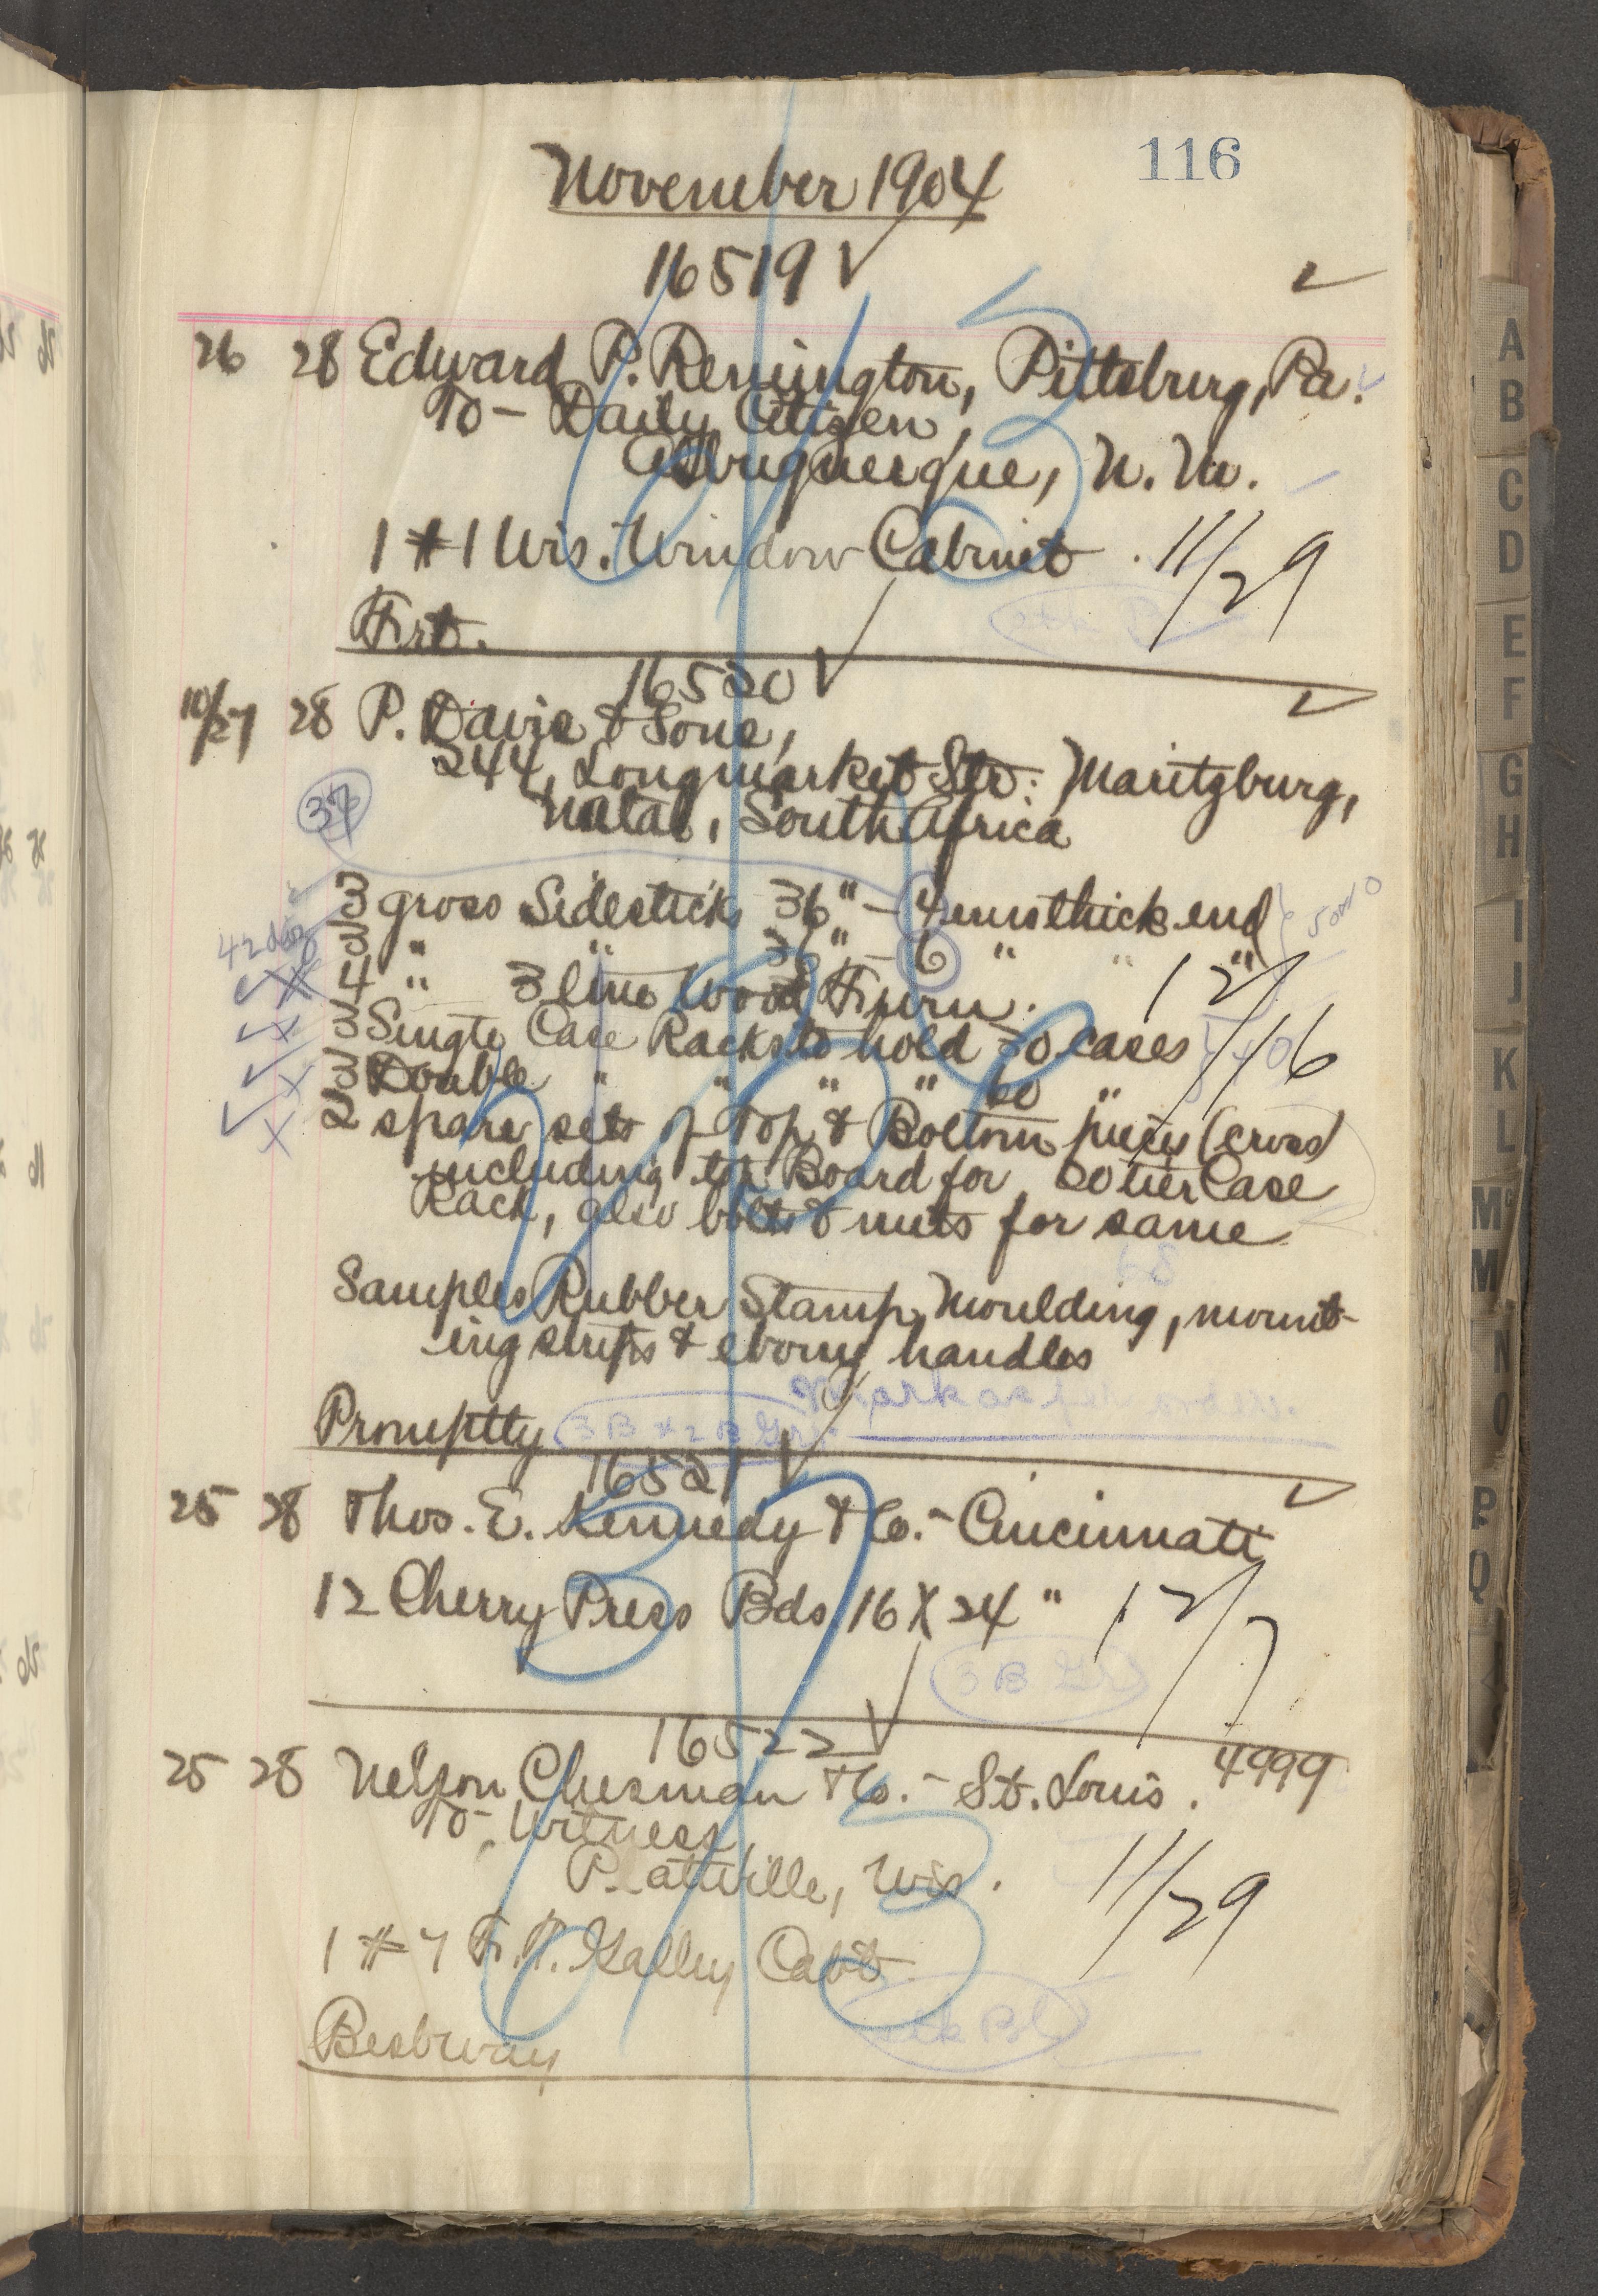 116
November 1904
16519 ✓
26 28 Edward P. Remington, Pittsburg, Pa.
To - Daily Citizen,
Albuquerque, N. M.
1 #1 Wis. Window Cabinet 11/29
Frt.
16520 ✓
10/27 28 P. Davis & Sons,
244, Longmarket Str: Maritzburg,
Natal, South Africa
37
3 gross Sidesticks 36" - 4 ems thick end
2 " " 36" - 6 " " "
42 doz
4 " 3 line Wood Furn. 12/16
2 Single Case Racks to hold 30 cases
2 Double " " " " 60 "
2 spare sets of Top & Bottom pieces (cross)
including top Board for 30 tier Case
Rack, also bolts & nuts for same
68
Samples Rubber Stamp Moulding, mount-
ing strips & ebony handles
Mark as per order.
Promptly 3 B & 2 B Gr.
16521 ✓
25 28 Thos. E. Kennedy & Co. - Cincinnati
12 Cherry Press Bds 16 X 24" 12/7
3 B Gr
16522 ✓
25 28 Nelson Chesman & Co. - St. Louis. 4999
To - Witness,
Platteville, Wis.
11/29
1 #7 F. P. Galley Cabt.
Bestway
A
B
C
D
E
F
G
H
I
J
K
L
Mc
M
N
O
P
Q